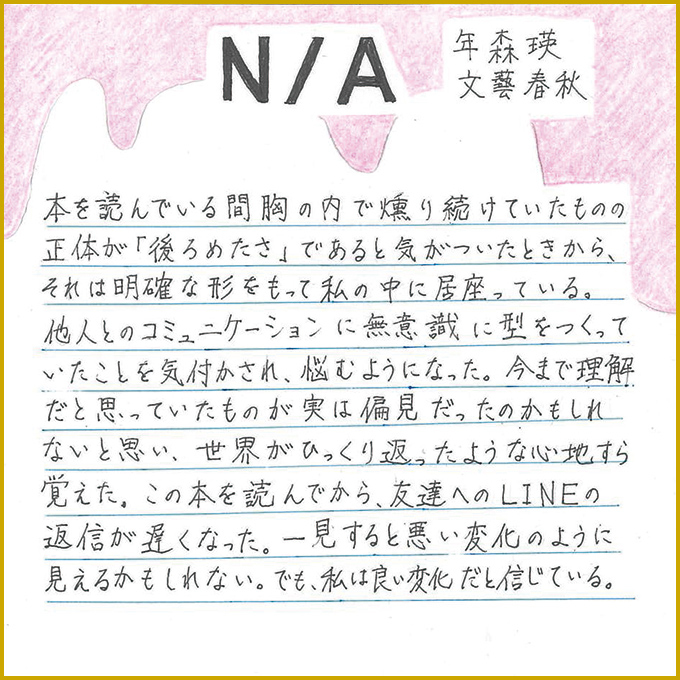 N/A
年森瑛
文藝春秋
本を読んでいる間胸の内で燻り続けていたものの
正体が「後ろめたさ」であると気がついたときから、
それは明確な形をもって私の中に居座っている。
他人とのコミュニケーションに無意識に型をつくって
いたことを気付かされ、悩むようになった。今まで理解
だと思っていたものが実は偏見だったのかもしれ
ないと思い、世界がひっくり返ったような心地すら
覚えた。この本を読んでから、友達へのLINEの
返信が遅くなった。一見すると悪い変化のように
見えるかもしれない。でも、私は良い変化だと信じている。